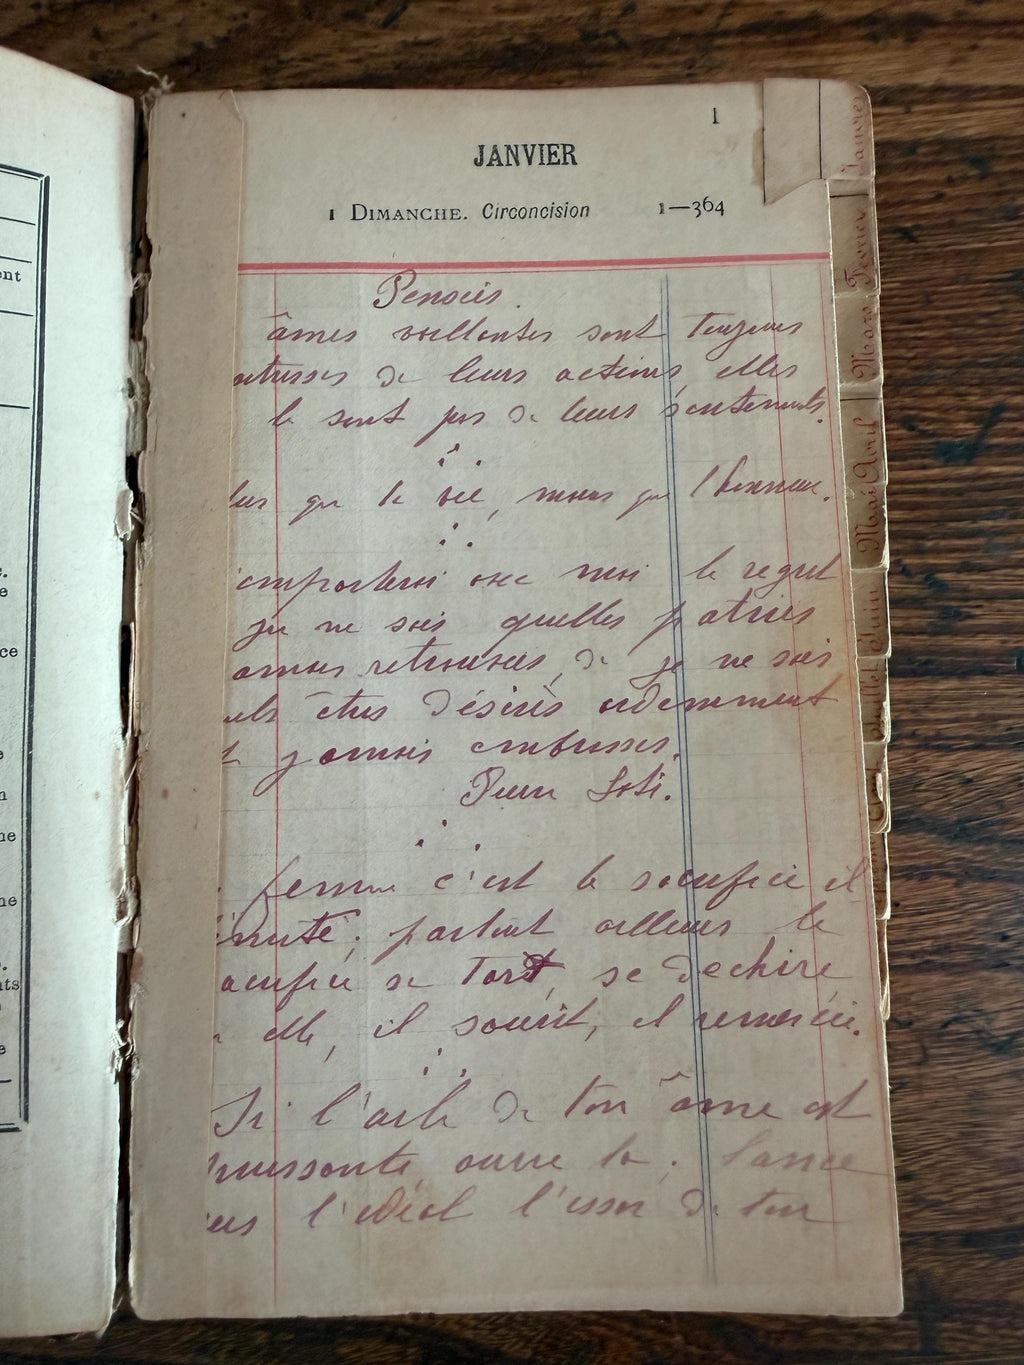 1
JANVIER
1 DIMANCHE. Circoncision 1—364
Janvier
Février
Mars
Avril
Mai
Juin
Juillet
Pensées.
âmes vaillantes sont toujours
de leurs actions, elles
le sont pas de leurs sentiments.
que la vie, moins que l'honneur.
emporterai avec moi le regret
je ne sais quelles patries
retrouvées, de je ne sais
êtres désirés ardemment
jamais embrassés.
Pierre Loti.
femme c'est le sacrifice il
partout ailleurs le
se tord, se dechire
elle, il sourit, il remercie.
Si l'aile de ton âme est
puissante, ouvre la. lance
l'idéal l'essor de ton
ent
ce
ne
ne
nts
e